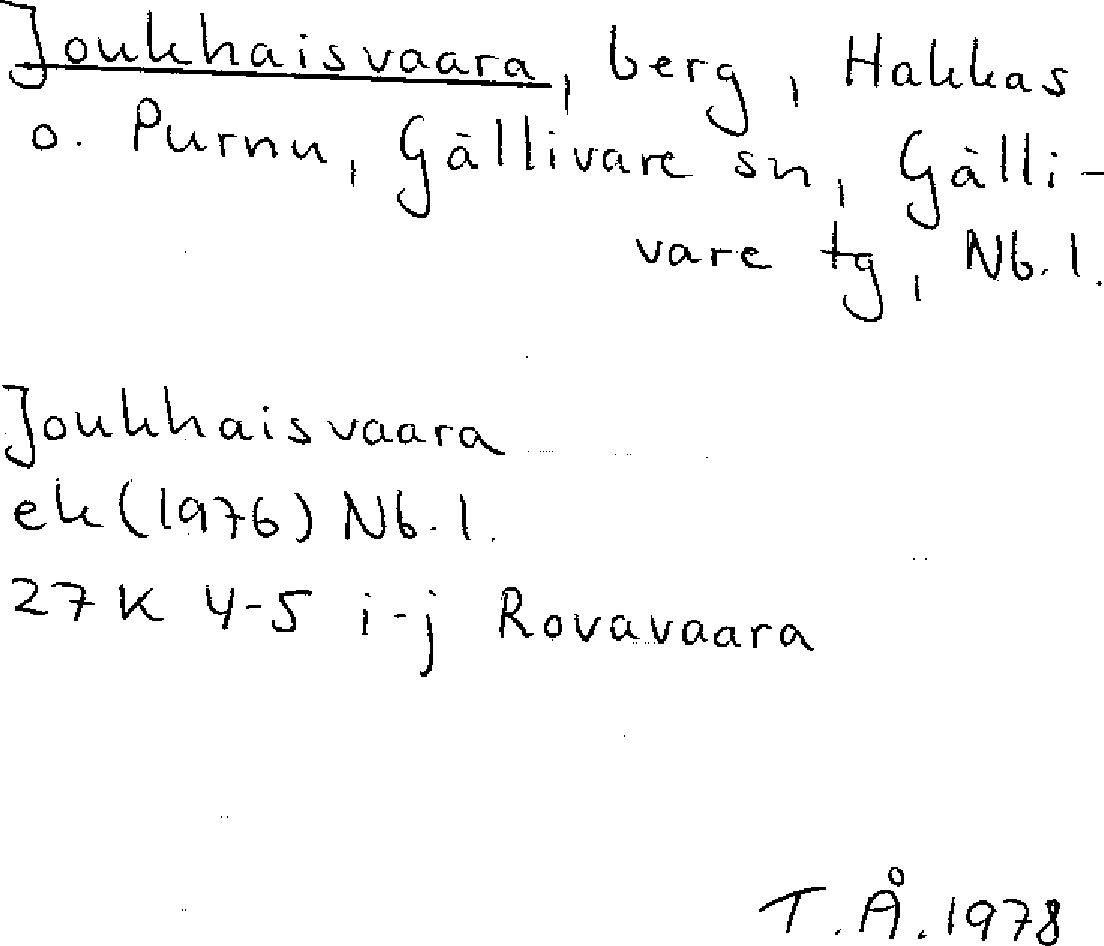 Joukhaisvaara, berg, Hakkas
o. Purnu, Gällivare sn, Gälli-
vare tg, Nb. l.
Joukhaisvaara
ek (1976) Nb. l.
27 K 4-5 i-j Rovavaara
T. Å. 1978